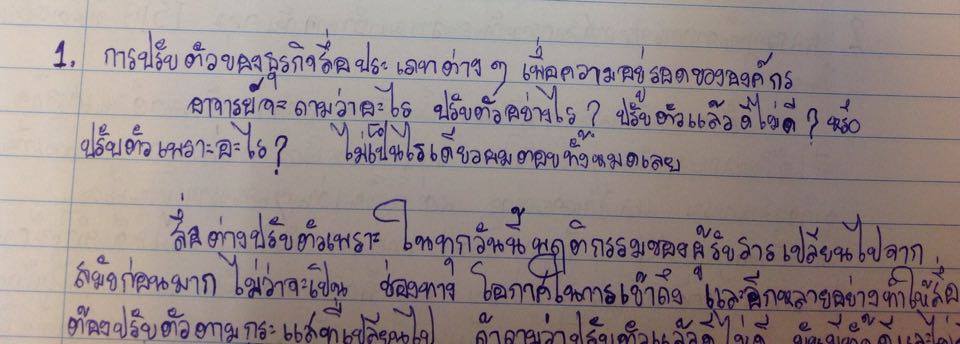 1. การปรับตัวของธุรกิจสื่อประเภทต่างๆ เพื่อความอยู่รอดขององค์กร
อาจารย์จะถามว่าอะไร ปรับตัวอย่างไร? ปรับตัวแล้วดีไม่ดี? หรือ
ปรับตัวเพราะอะไร? ไม่เป็นไรเดี๋ยวผมตอบทั้งหมดเลย
สื่อต่างปรับตัวเพราะ ในทุกวันนี้พฤติกรรมของผู้รับสารเปลี่ยนไปจาก
สมัยก่อนมาก ไม่ว่าจะเป็น ช่องทาง โอกาสในการเข้าถึง และอีกหลายอย่างทำให้สื่อ
ต้องปรับตัวตามกระแสที่เปลี่ยนไป ถ้าถามว่าปรับตัวแล้วดีไม่ดี